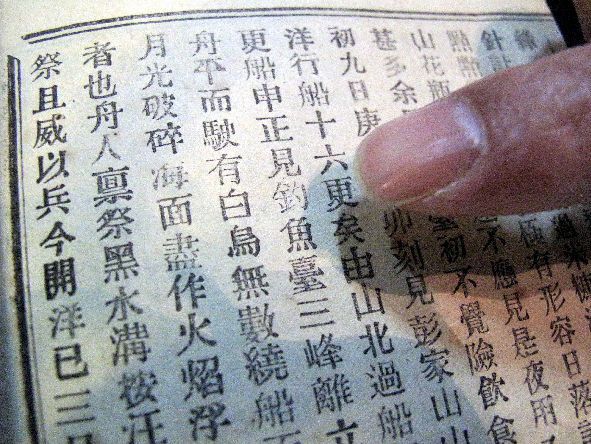 針計
點點
極有形容日落
山花瓶
不應見是夜用
甚多余
初不覺險飲食
初九日庚
卯刻見彭家山山
洋行船十六更矣由山北過船
更船申正見釣魚臺三峰離立
舟平而駛有白鳥無數繞船而
月光破碎海面盡作火焰浮
者也舟人禀祭黑水溝按汪
祭且威以兵今開洋已三日